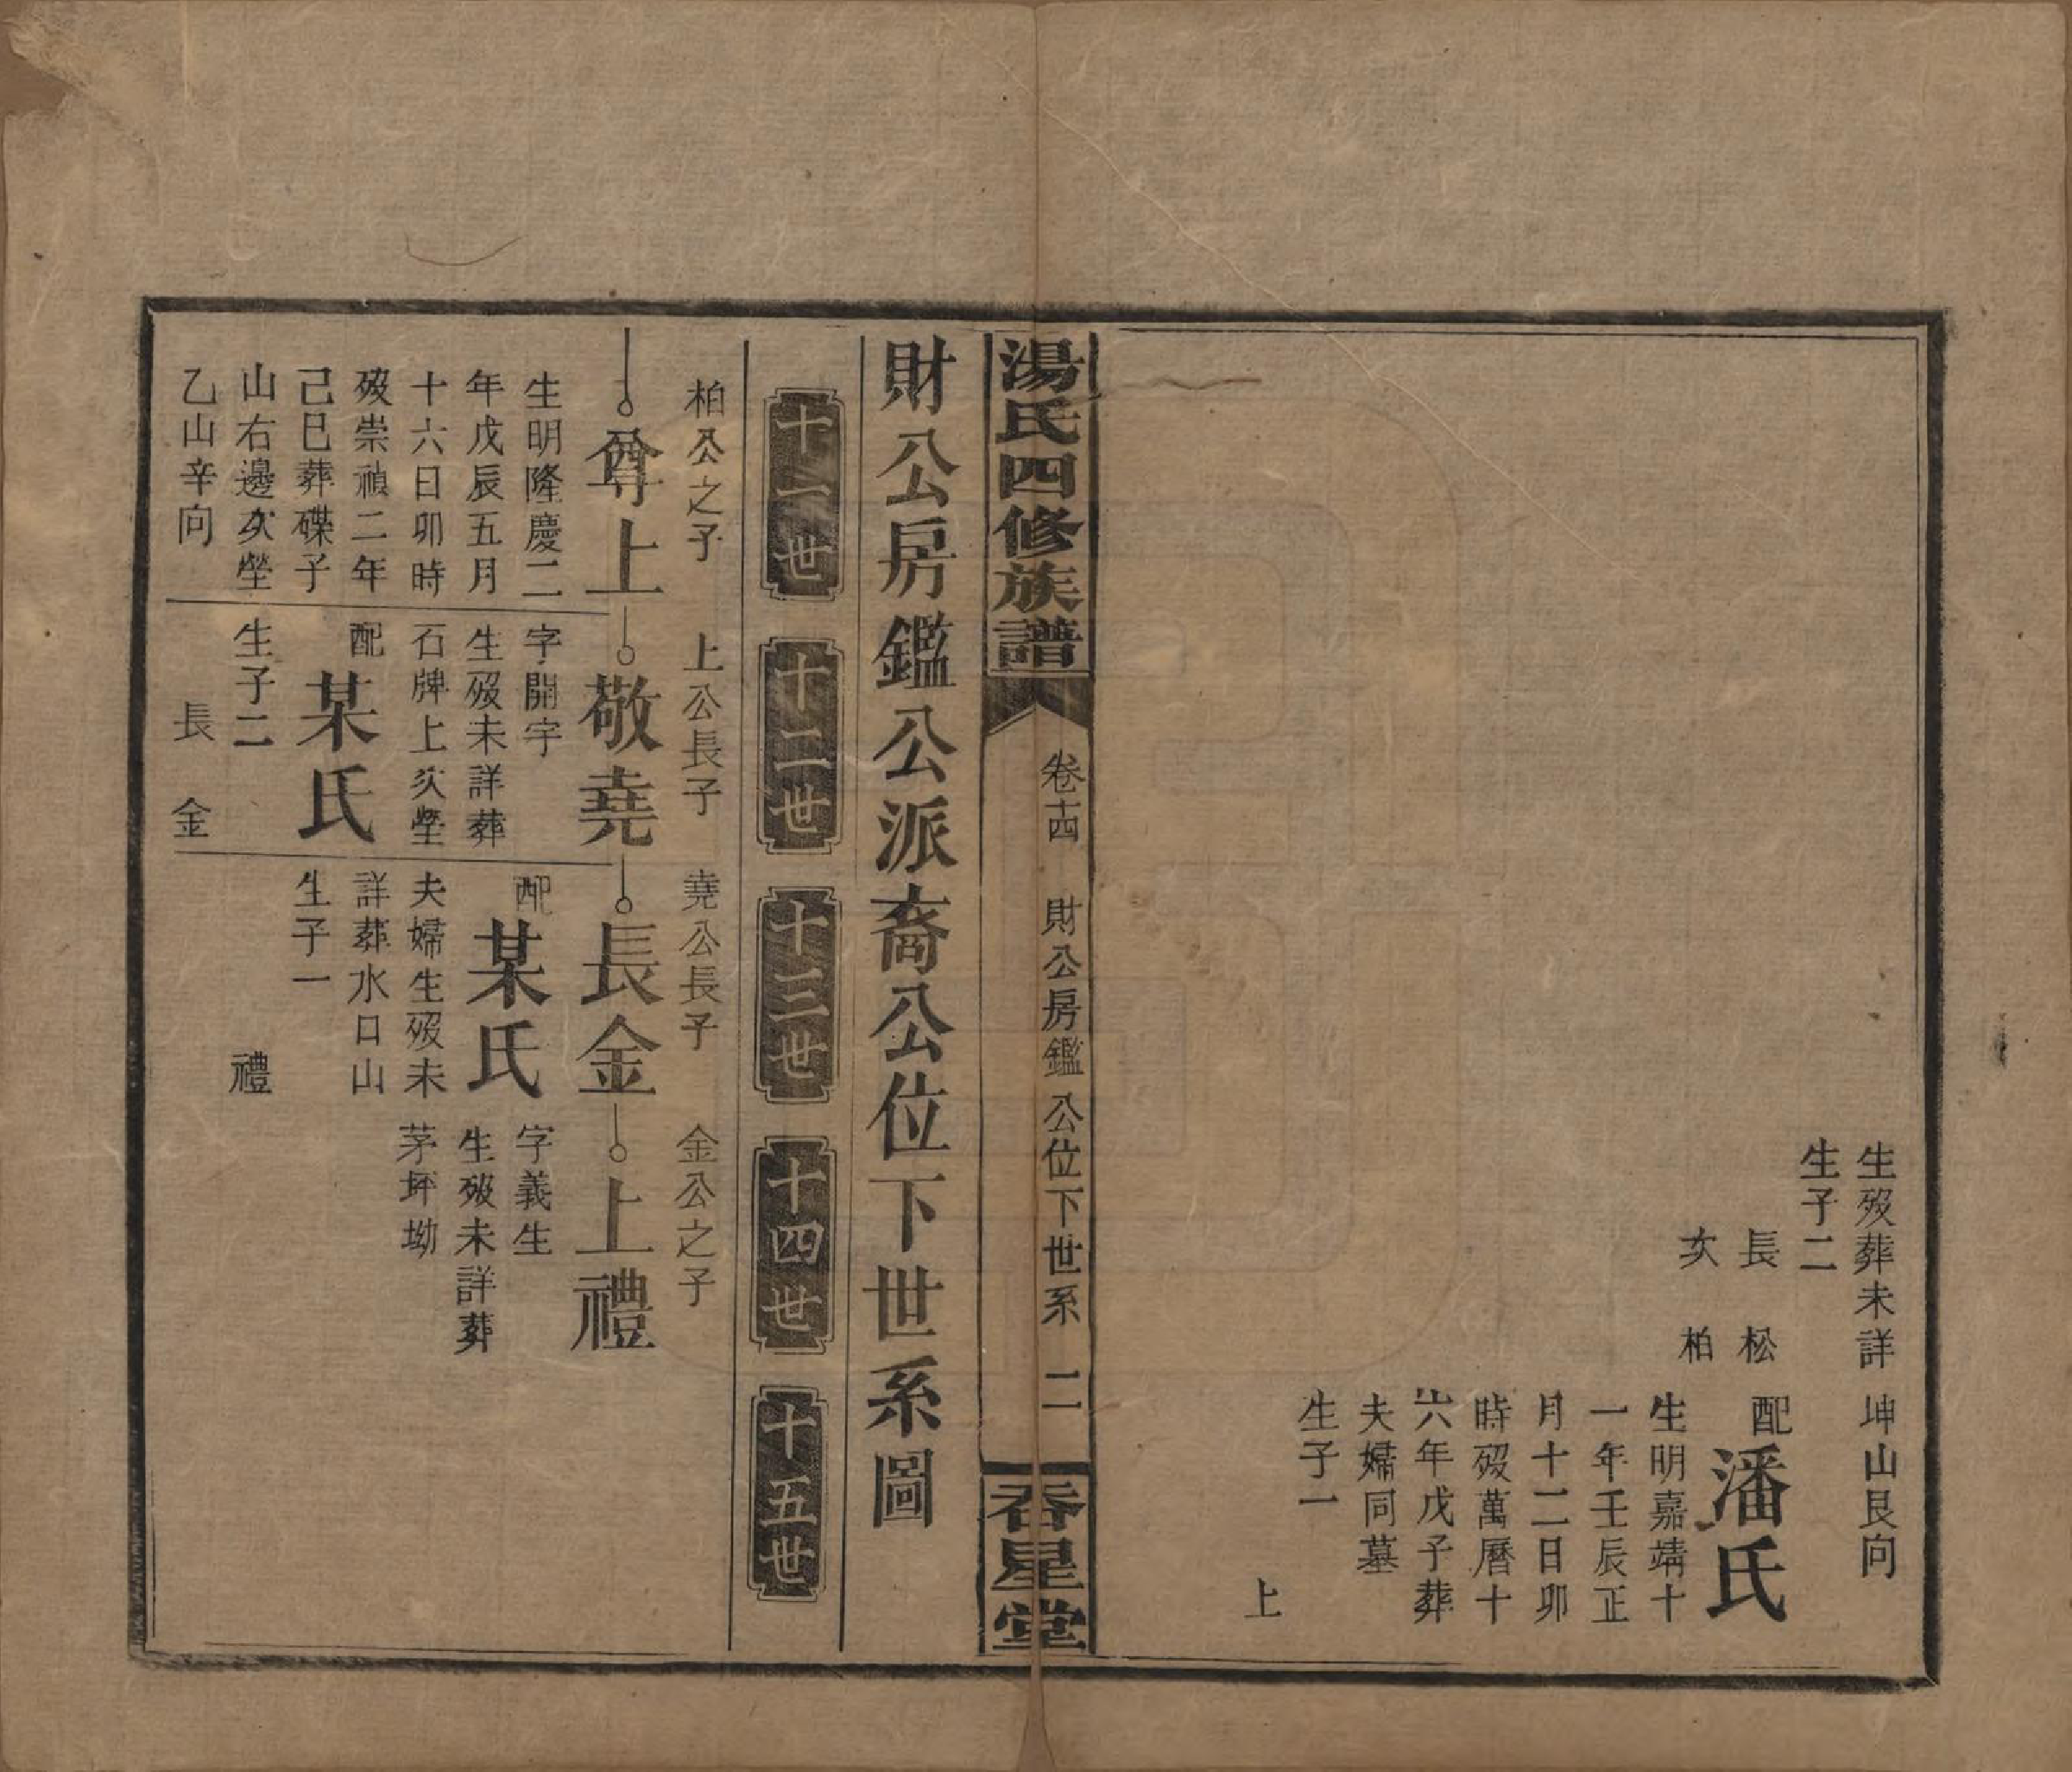 生歿葬未詳
生子二
長　松
次　柏
坤山艮向
配
潘氏
生明嘉靖十
一年壬辰正
月十二日卯
時歿萬曆十
六年戊子葬
夫婦同墓
生子一
上
湯氏四修族譜
卷十四　財公房鑑公位下世系　二
香星堂
財公房鑑公派裔公位下世系圖
十一世
十二世
十三世
十四世
十五世
柏公之子
尊上
生明隆慶二
年戊辰五月
十六日卯時
歿崇禎二年
己巳葬磜子
山右邊次塋
乙山辛向
上公長子
敬堯
字開宇
生歿未詳葬
石牌上次塋
配
某氏
生子二
長　金
禮
堯公長子
長金
配
某氏
夫婦生歿未
詳葬水口山
生子一
金公之子
上禮
字義生
生歿未詳葬
茅坪坳